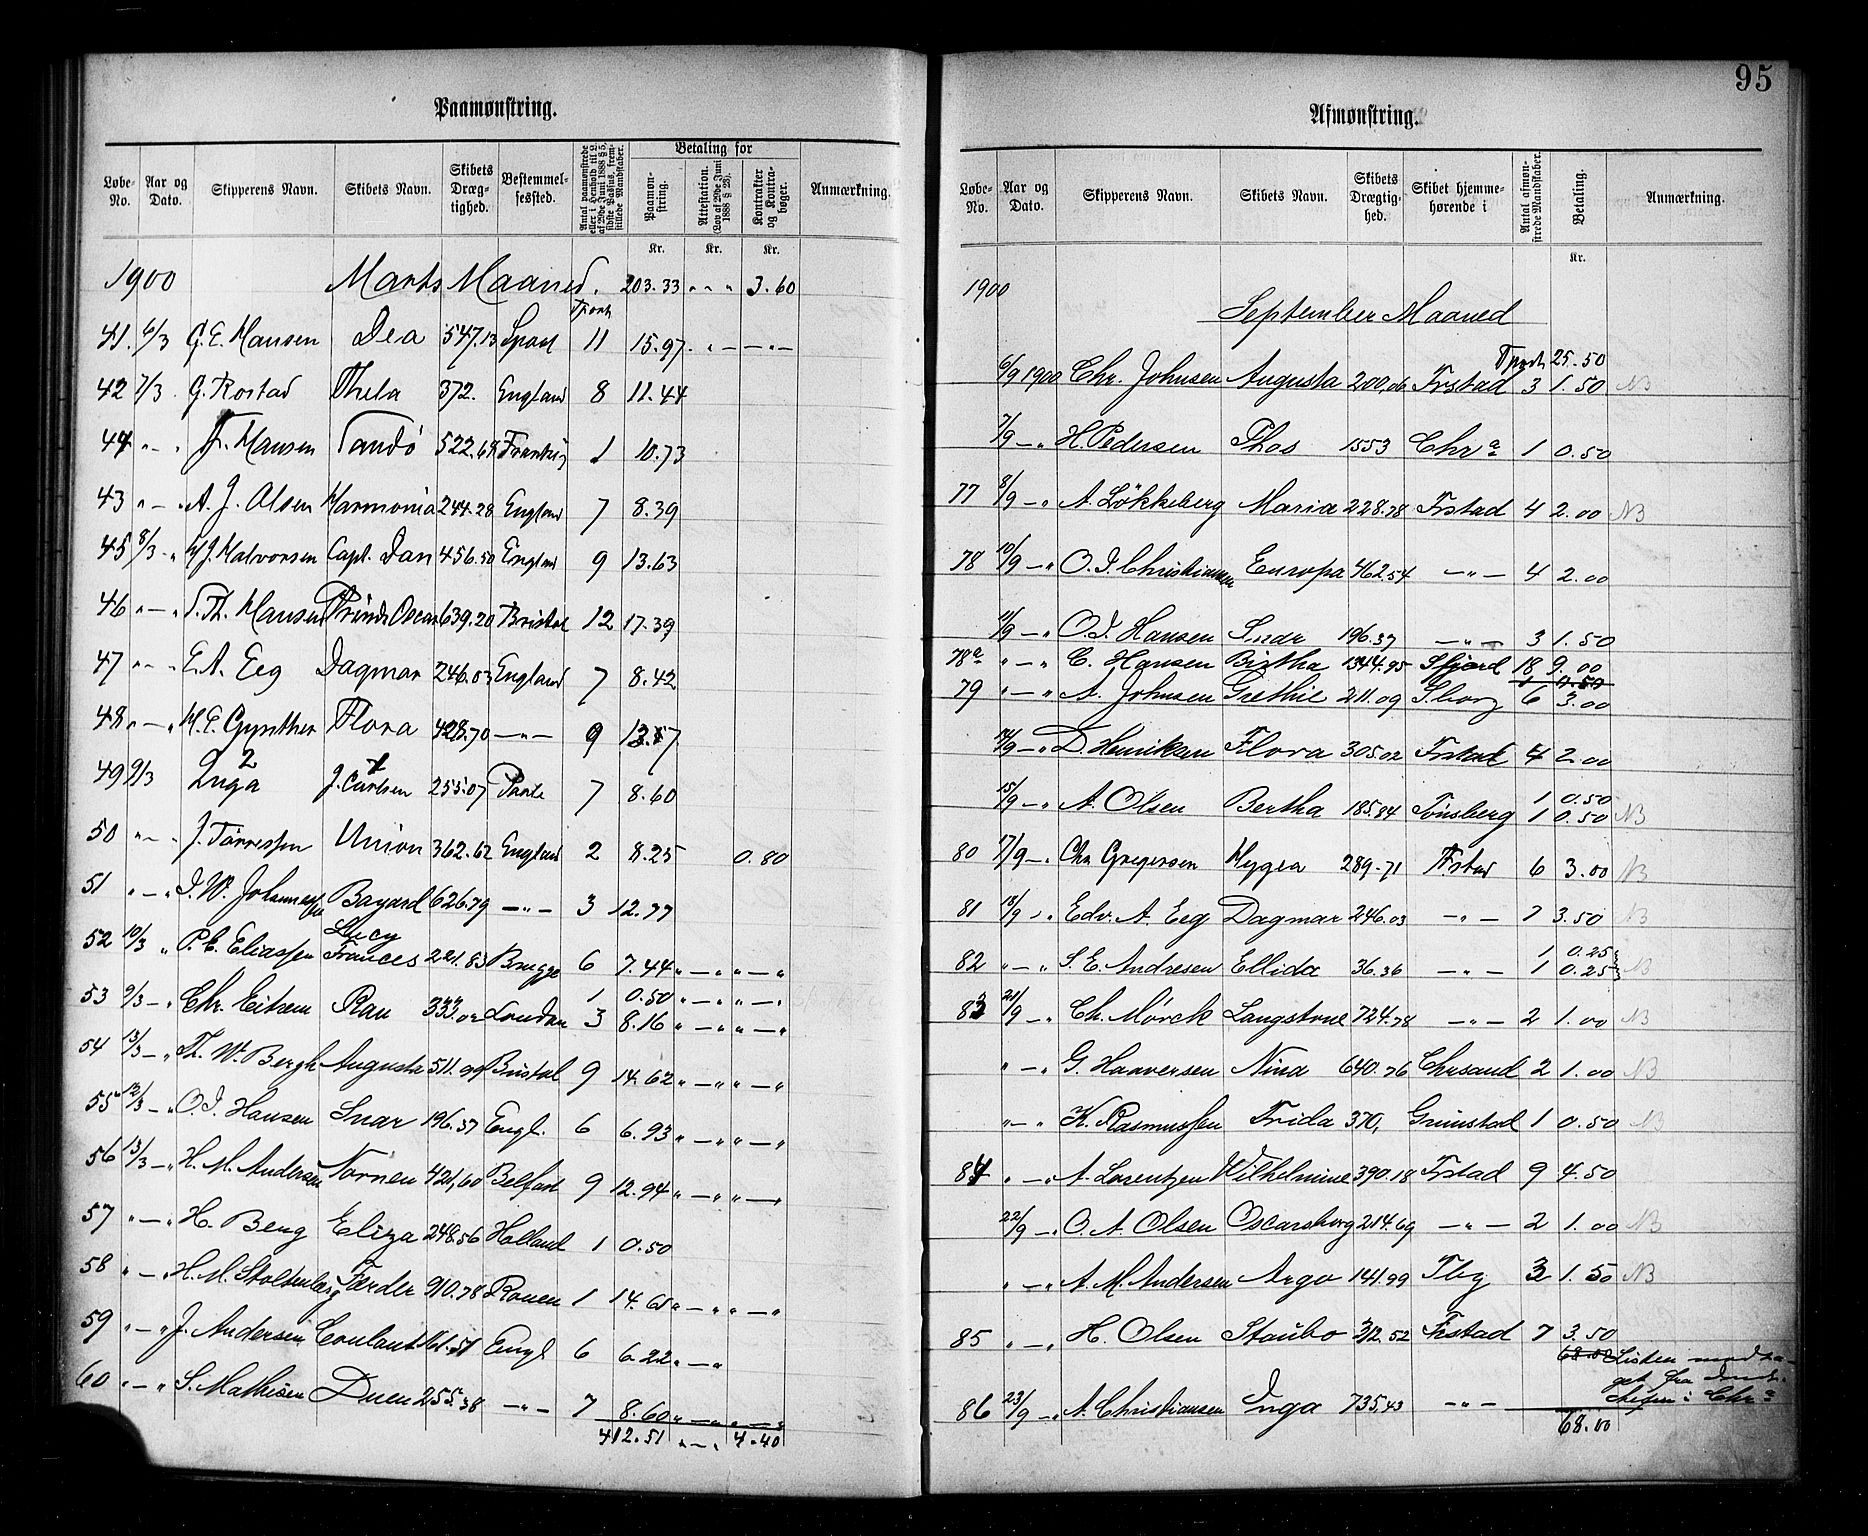 95
Paamønstring.
Løbe-No. Aar og Dato. Skipperens Navn. Skibets Navn. Skibets Dræg-tighed. Bestemmel-sessted. Antal paamønstrede eller i Henhold til L. af 29de Juni 1888 § 5, sidste Passus, frem-stillede Mandskaber. Betaling for Paamøn-string. Attestation. (Lov af 29de Juni 1888 § 23). Kontrakter og Kontra-bøger. Anmærkning.
Kr. Kr. Kr.
1900 Marts Maaned. Tport 203.33 " - " 3.60
41. 6/3 G. E. Hansen Dea 547.13 11 15.97 " - " -
42 7/3 G. Rostad Thela 372. England 8 11.44
44 " - " Fr. Hansen Sandö 522.68 1 10.73
43 " - " A. J. Olsen Harmonia 244.28 England 7 8.39
45 8/3 " H J. Halvorsen Capt. Dan 456.50 England 9 13.63
46 " - " S. Th. Hansen Prinds Oscar 639.20 Bristol 12 17.39
47 " - " E. A. Eeg Dagmar 246.03 England 7 8.42
48 " - " H. E. Gynther Flora 428.70 - " - 9 13.57
49 9/3 2 Inga 1 J. Carlsen 255.07 7 8.60
50 " - " J. Tørressen Union 362.62 England 2 8.25 0.80
51 " - " I. W. Johannessen Bayard 626.79 - " - 3 12.77
52 10/3 " P. C. Eliassen Lucy Frances 221.83 Brügge 6 7.44 " - " " - "
1 0.50 " - " " - "
53 9/3 - " Chr. Eitrem Ran 333.02 London 3 8.16 " - " " - "
54 13/3 - " Th. W. Bergh Augusta 511.99 Bristol 9 14.62 " - " " - "
55 12/3 - " O. J. Hansen Snar 196.37 Engl. 6 6.93 " - " " - "
56 13/3 - " H. M. Andersen Nornen 421,60 Belfast 9 12.94 " - " " - "
57 " - " H. Beng Eliza 248.56 Holland 1 0.50
58 " - " H. M. Stoltenberg Færder 910.78 Rouen 1 14.61 " - " " - "
59 " - " J. Andersen Coulant 161.51 Engl 6 6.22 " - "
60 " - " S. Mathisen Duen 255.38 - " - 7 8.60 " - " " - "
412.51 " - " 4.40
Afmønstring.
Løbe-No. Aar og Dato. Skipperens Navn. Skibets Navn. Skibets Drægtig-hed. Skibet hjemme-hørende i Antal afmøn-strede Mandskaber. Betaling. Anmærkning.
Kr.
1900
September Maaned
Tport 25.50
6/9 1900 Chr. Johnsen Augusta 200,06 Frstad 3 1.50 NB
7/9 - " H. Pedersen Thos 1553 Chra 1 0.50
77 8/9 - " A. Løkkeberg Maria 228.78 Frstad 4 2.00 NB
78 10/9 - " O. J. Christiansen Europa 462.54 - " - 4 2.00
11/9 - " O. J. Hansen Snar 196.37 - " - 3 1.50
78a " - " C. Hansen Birtha 1344.95 Sfjord 18 9.00
1 0.50
79 " - " A. Johnsen Grethie 211.09 Sborg 6 3.00
14/9 - " D. Henriksen Flora 305.02 Frstad 4 2.00
1 0.50
15/9 - " A. Olsen Bertha 185.84 Tønsberg 1 0.50 NB
80 17/9 - " Chr Gregersen Hygea 289.71 Frstad 6 3.00 NB
81 18/9 - " Edv. A. Eeg Dagmar 246.03 - " - 7 3.50 NB
1 0.25
82 " - " S. E. Andresen Ellida 36.36 - " - 1 0.25 NB
83 21/9 - " Ch. Mörck Langstone 724.78 - " - 2 1.00 NB
" - " G. Haaversen Nina 640.76 Chrsand 2 1.00 NB
" - " K. Rasmussen Frida 370, Grimstad 1 0.50 NB
84 " - " A. Lorentzen Wilhelmine 390.18 Frstad 9 4.50
22/9 - " O. A. Olsen Oscarsborg 214.69 - " - 2 1.00 NB
" - " A. M. Andersen Argo 141.99 Tbg 3 1.50 NB
85 " - " H. Olsen Staubo 312.52 Frstad 7 3.50
68.00 Listen modta-
get fra
86 23/9 - " A. Christiansen Inga 735.43 - " - i Chra
68.00